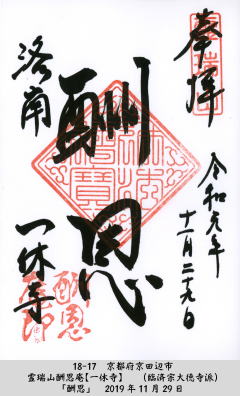 奉拝
令和元年
十一月二十九日
酬恩
洛南
一休寺
酬恩
18-17 京都府京田辺市
霊瑞山酬恩庵【一休寺】 (臨済宗大徳寺派)
「酬恩」 2019年11月29日